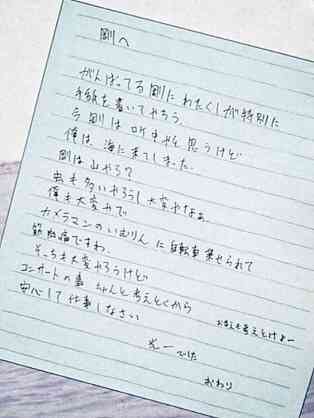 剛へ
がんばってる剛に わたくしが特別に
手紙を書いてやろう。
今 剛は 吹きやと思うけど
俺は 海に来てしました。
剛は 山やろ?
虫も多いやろうし 大変やなぁ
俺も大変やで
カメラマンのいむりんに自転車乗せられて
筋肉痛ですわ。
そっちも大変やろうけど
コンサートの事 ちゃんと考えとくから
おまえも考えとけよー
安心して仕事しなさい
光一でした
おわり